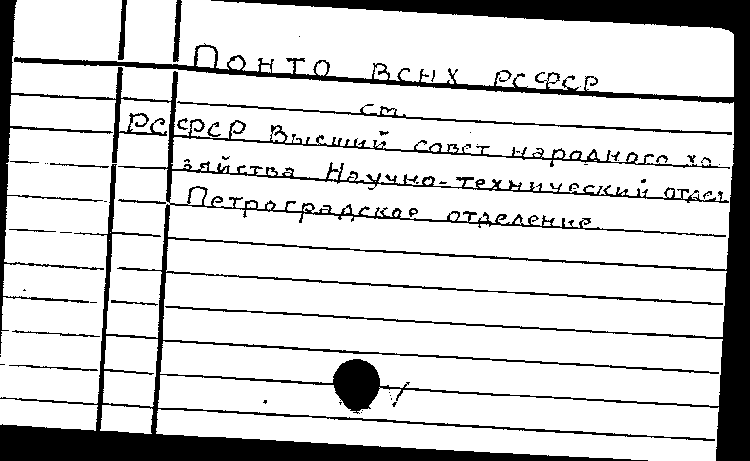 Понто ВСНХ РСФСР
см.
РСФСР Высший совет народного хо
зяйства Научно-технический отдел
Петроградское отделение.